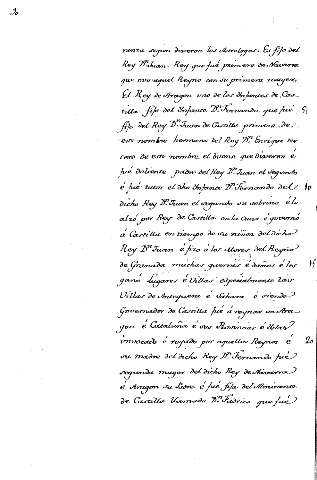 20
renza segun dixeron los Astrologos. Es fijo del
Rey Dn. Juan. Rey que fué primero de Navarra
que ovo aquel Reyno con su primera muger.
El Rey de Aragon uno de los Infantes de Cas-
tilla fijo del Infante Dn. Fernando que fué 5
fijo del Rey Dn. Juan de Castilla primero de
este nombre hermano del Rey Dn. Enrique ter-
cero de este nombre el bueno que dixeron é
fué doliente padre del Rey Dn. Juan el segundo
é fué tutor el dho Infante Dn. Fernando del 10
dicho Rey Dn. Juan el segundo su sobrino é lo
alzó por Rey de Castilla en la Cuna é governó
á Castilla en tiempo de su niñez del dicho
Rey Dn. Juan é fizo á los Moros del Regno
de Granada muchas guerras é daños é les 15
ganó lugares é Villas especialmente las
Villas de Antequera é Sahara é siendo
Governador de Castilla fué á reynar en Ara-
gon é Cataluña é sus Provincias é Yslas
invocado é rogado por aquellos Reynos é 20
su madre del dicho Rey Dn. Fernando fué
segunda muger del dicho Rey de Navarra
é Aragon su Padre é fué fija del Almirante
de Castilla llamado Dn. Fadrique que fué